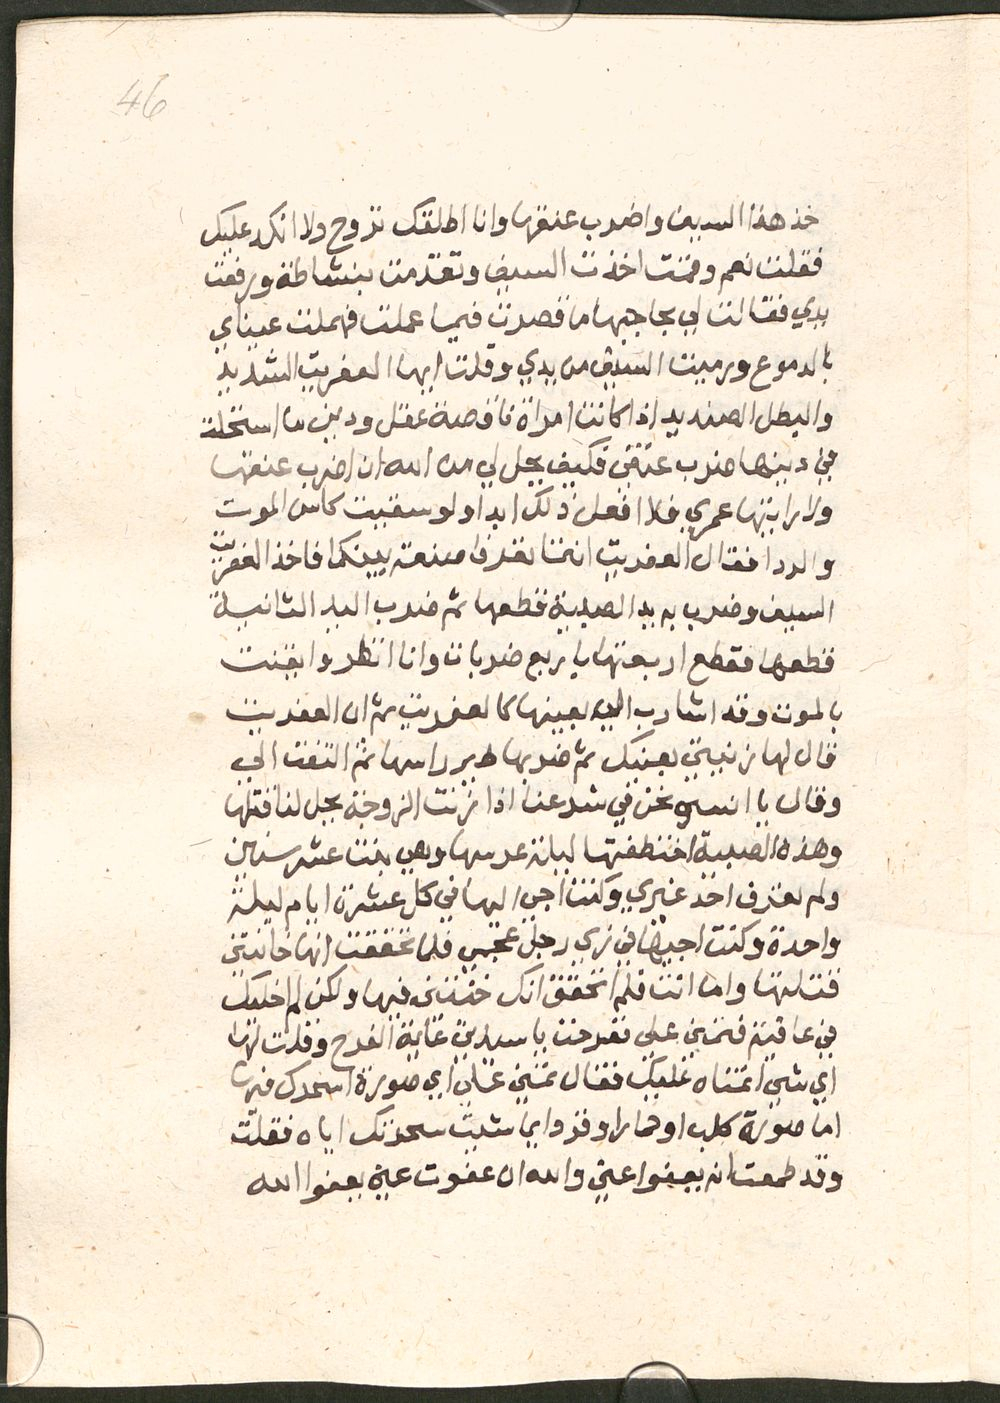 46
خذ هذا السيف واضرب عنقها وانا اطلقك تروح ولا انكد عليك
فقلت نعم وقمت اخذت السيف وتقدمت بنشاطة ورفعت
يدي فقالت لي بحاجبها ما قصرت فيما عملت فهملت عيناي
بالدموع ورميت السيف من يدي وقلت ايها العفريت الشديد
والبطل الصنديد اذا كانت امراة ناقصة عقل ودين ما استحلت
في دينها ضرب عنقي فكيف يحل لي من الله ان اضرب عنقها
ولا رايتها عمري فلا افعل ذلك ابدا ولو سقيت كاس الموت
والردا فقال العفريت انتما تعرفا صنعة بينكما فاخذ العفريت
السيف وضرب به يد الصبية قطعها ثم ضرب اليد الثانية
قطعها فقطع اربعتها باربع ضربات وانا انظر وايقنت
بالموت وقد اشارت اليه بعينها كالعفريت ثم ان العفريت
قال لها زنيتي بعينك ثم ضربها طير راسها ثم التفت الي
وقال يا انسي نحن في شرعنا اذا زنت الزوجة يحل لنا قتلها
وهذه الصبية اختطفتها ليلة عرسها وهي بنت عشر سنين
ولم تعرف احد غيري وكنت اجي اليها في كل عشرة ايام ليلة
واحدة وكنت اجيها في زي رجل عجمي فلما تحققت انها خانتني
قتلتها واما انت فلم اتحقق انك خنتني فيها ولكن لم اخليك
في عافية فتمنى علي ففرحت يا سيدتي غاية الفرح وقلت له
اي شي اتمناه عليك فقال تمنى علي اي صورة اسحرك فيها
اما صورة كلب او حمار او قرد ايما شيت سحرتك اياه فقلت
وقد طمعت انه يعفوا عني والله ان عفوت عني يعفوا الله